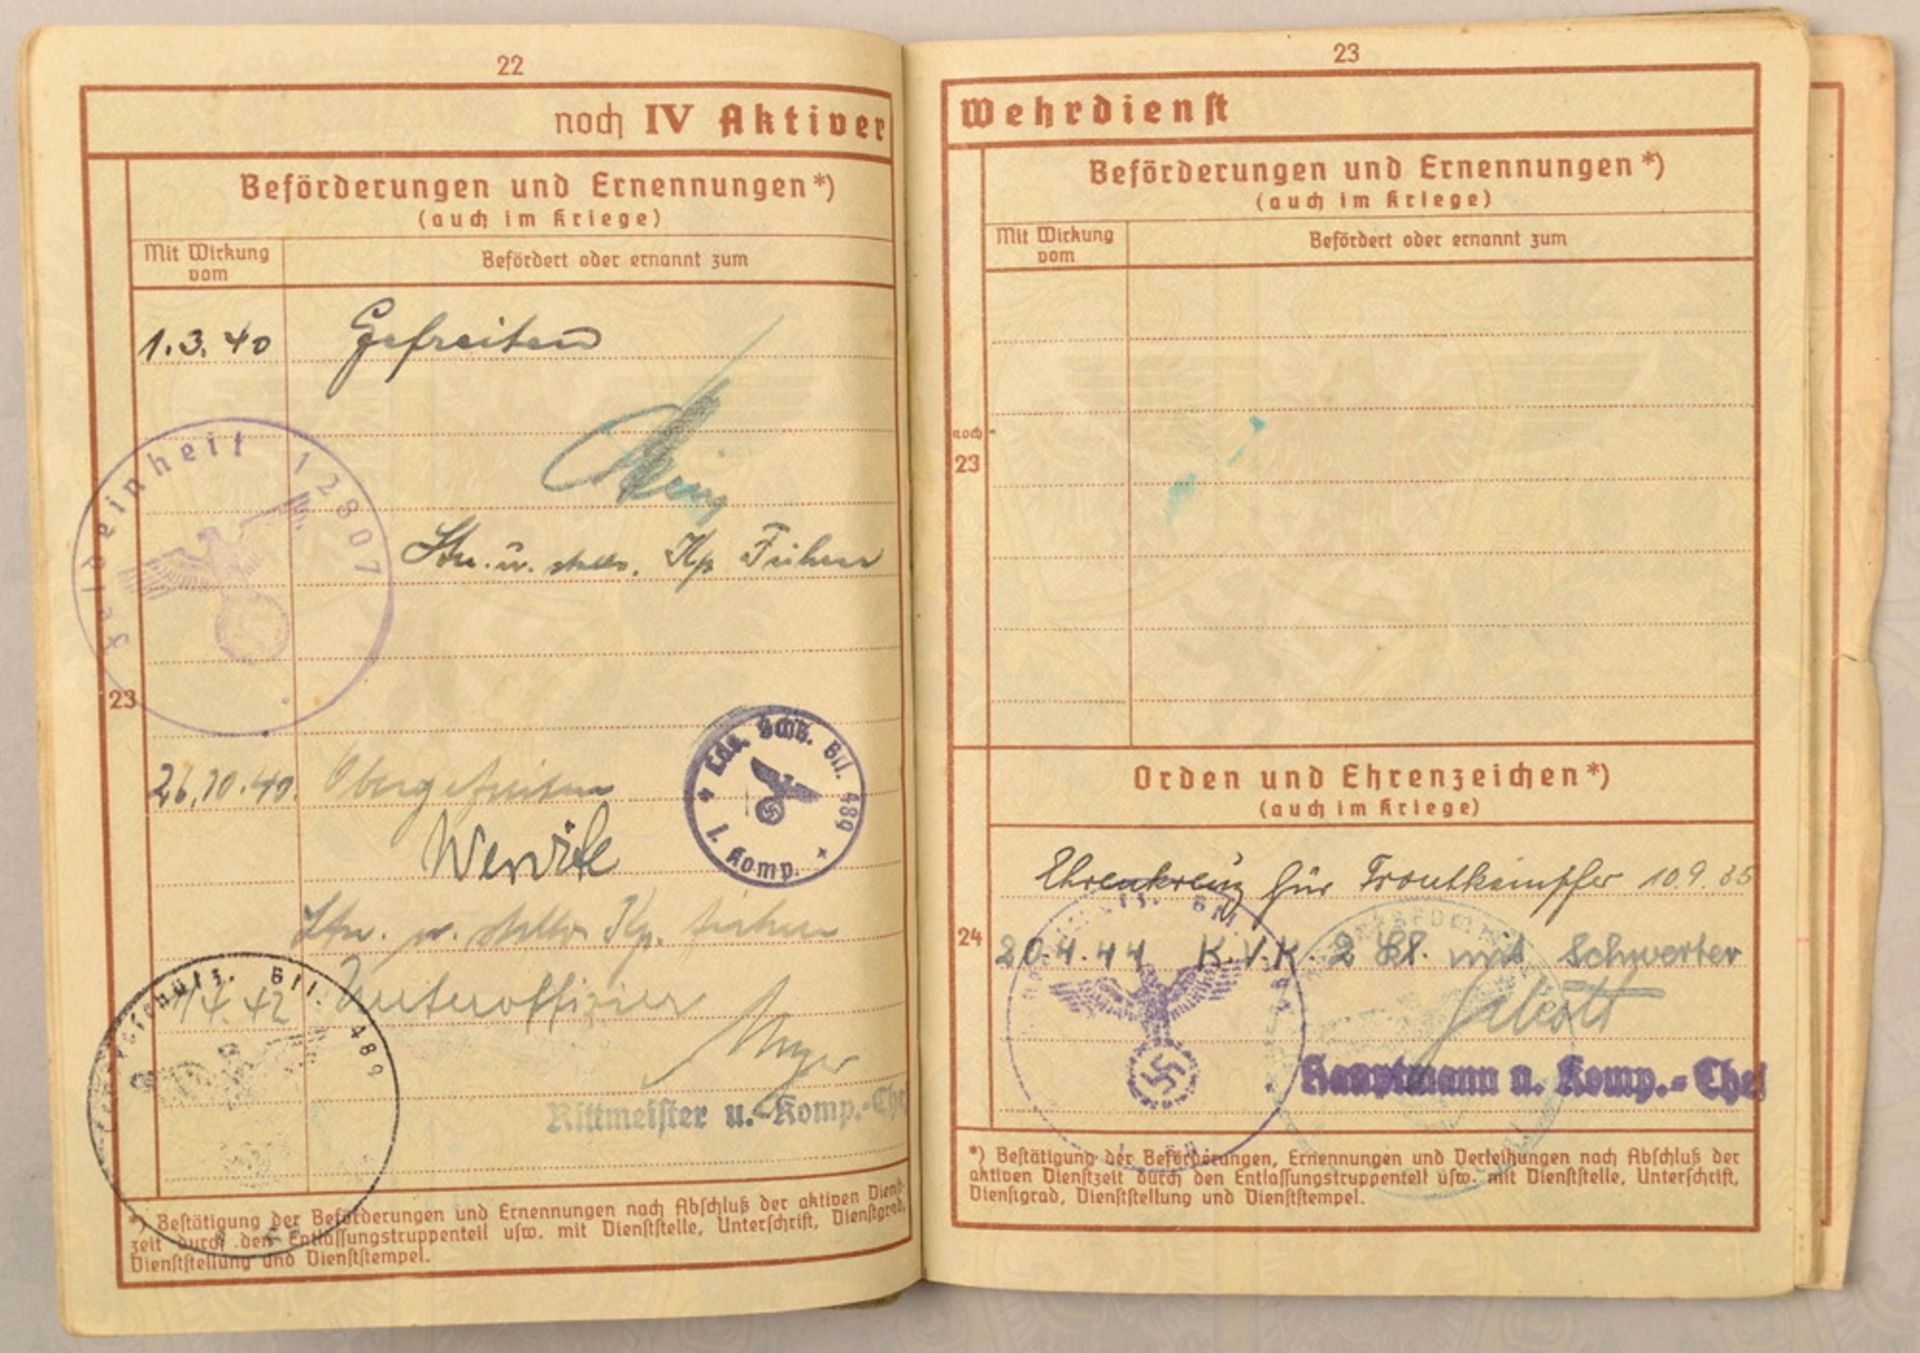 22
noch IV Aktiver
Beförderungen und Ernennungen*)
(auch im Kriege)
Mit Wirkung vom
Befördert oder ernannt zum
1.3.40 Gefreiten
Feldeinheit 12807
Ltn. u. stellv. Kp Führer
23
26.10.40. Obergefreiten
Lds. Schtz. Btl. 489
1. Komp.
Ltn. u. stellv. Kp. Führer
1.4.42 Unteroffizier
Meyer
Rittmeister u. Komp.-Chef
489
*) Bestätigung der Beförderungen und Ernennungen nach Abschluß der aktiven Dienst-
zeit durch den Entlassungstruppenteil usw. mit Dienststelle, Unterschrift, Dienstgrad,
Dienststellung und Dienststempel.
23
Wehrdienst
Beförderungen und Ernennungen*)
(auch im Kriege)
Mit Wirkung vom
Befördert oder ernannt zum
noch
23
Orden und Ehrenzeichen*)
(auch im Kriege)
Ehrenkreuz für Frontkämpfer 10.9.35
24
20.4.44 K.V.K. 2 Kl. mit Schwerter
Hauptmann u. Komp.-Chef
*) Bestätigung der Beförderungen, Ernennungen und Verleihungen nach Abschluß der
aktiven Dienstzeit durch den Entlassungstruppenteil usw. mit Dienststelle, Unterschrift,
Dienstgrad, Dienststellung und Dienststempel.